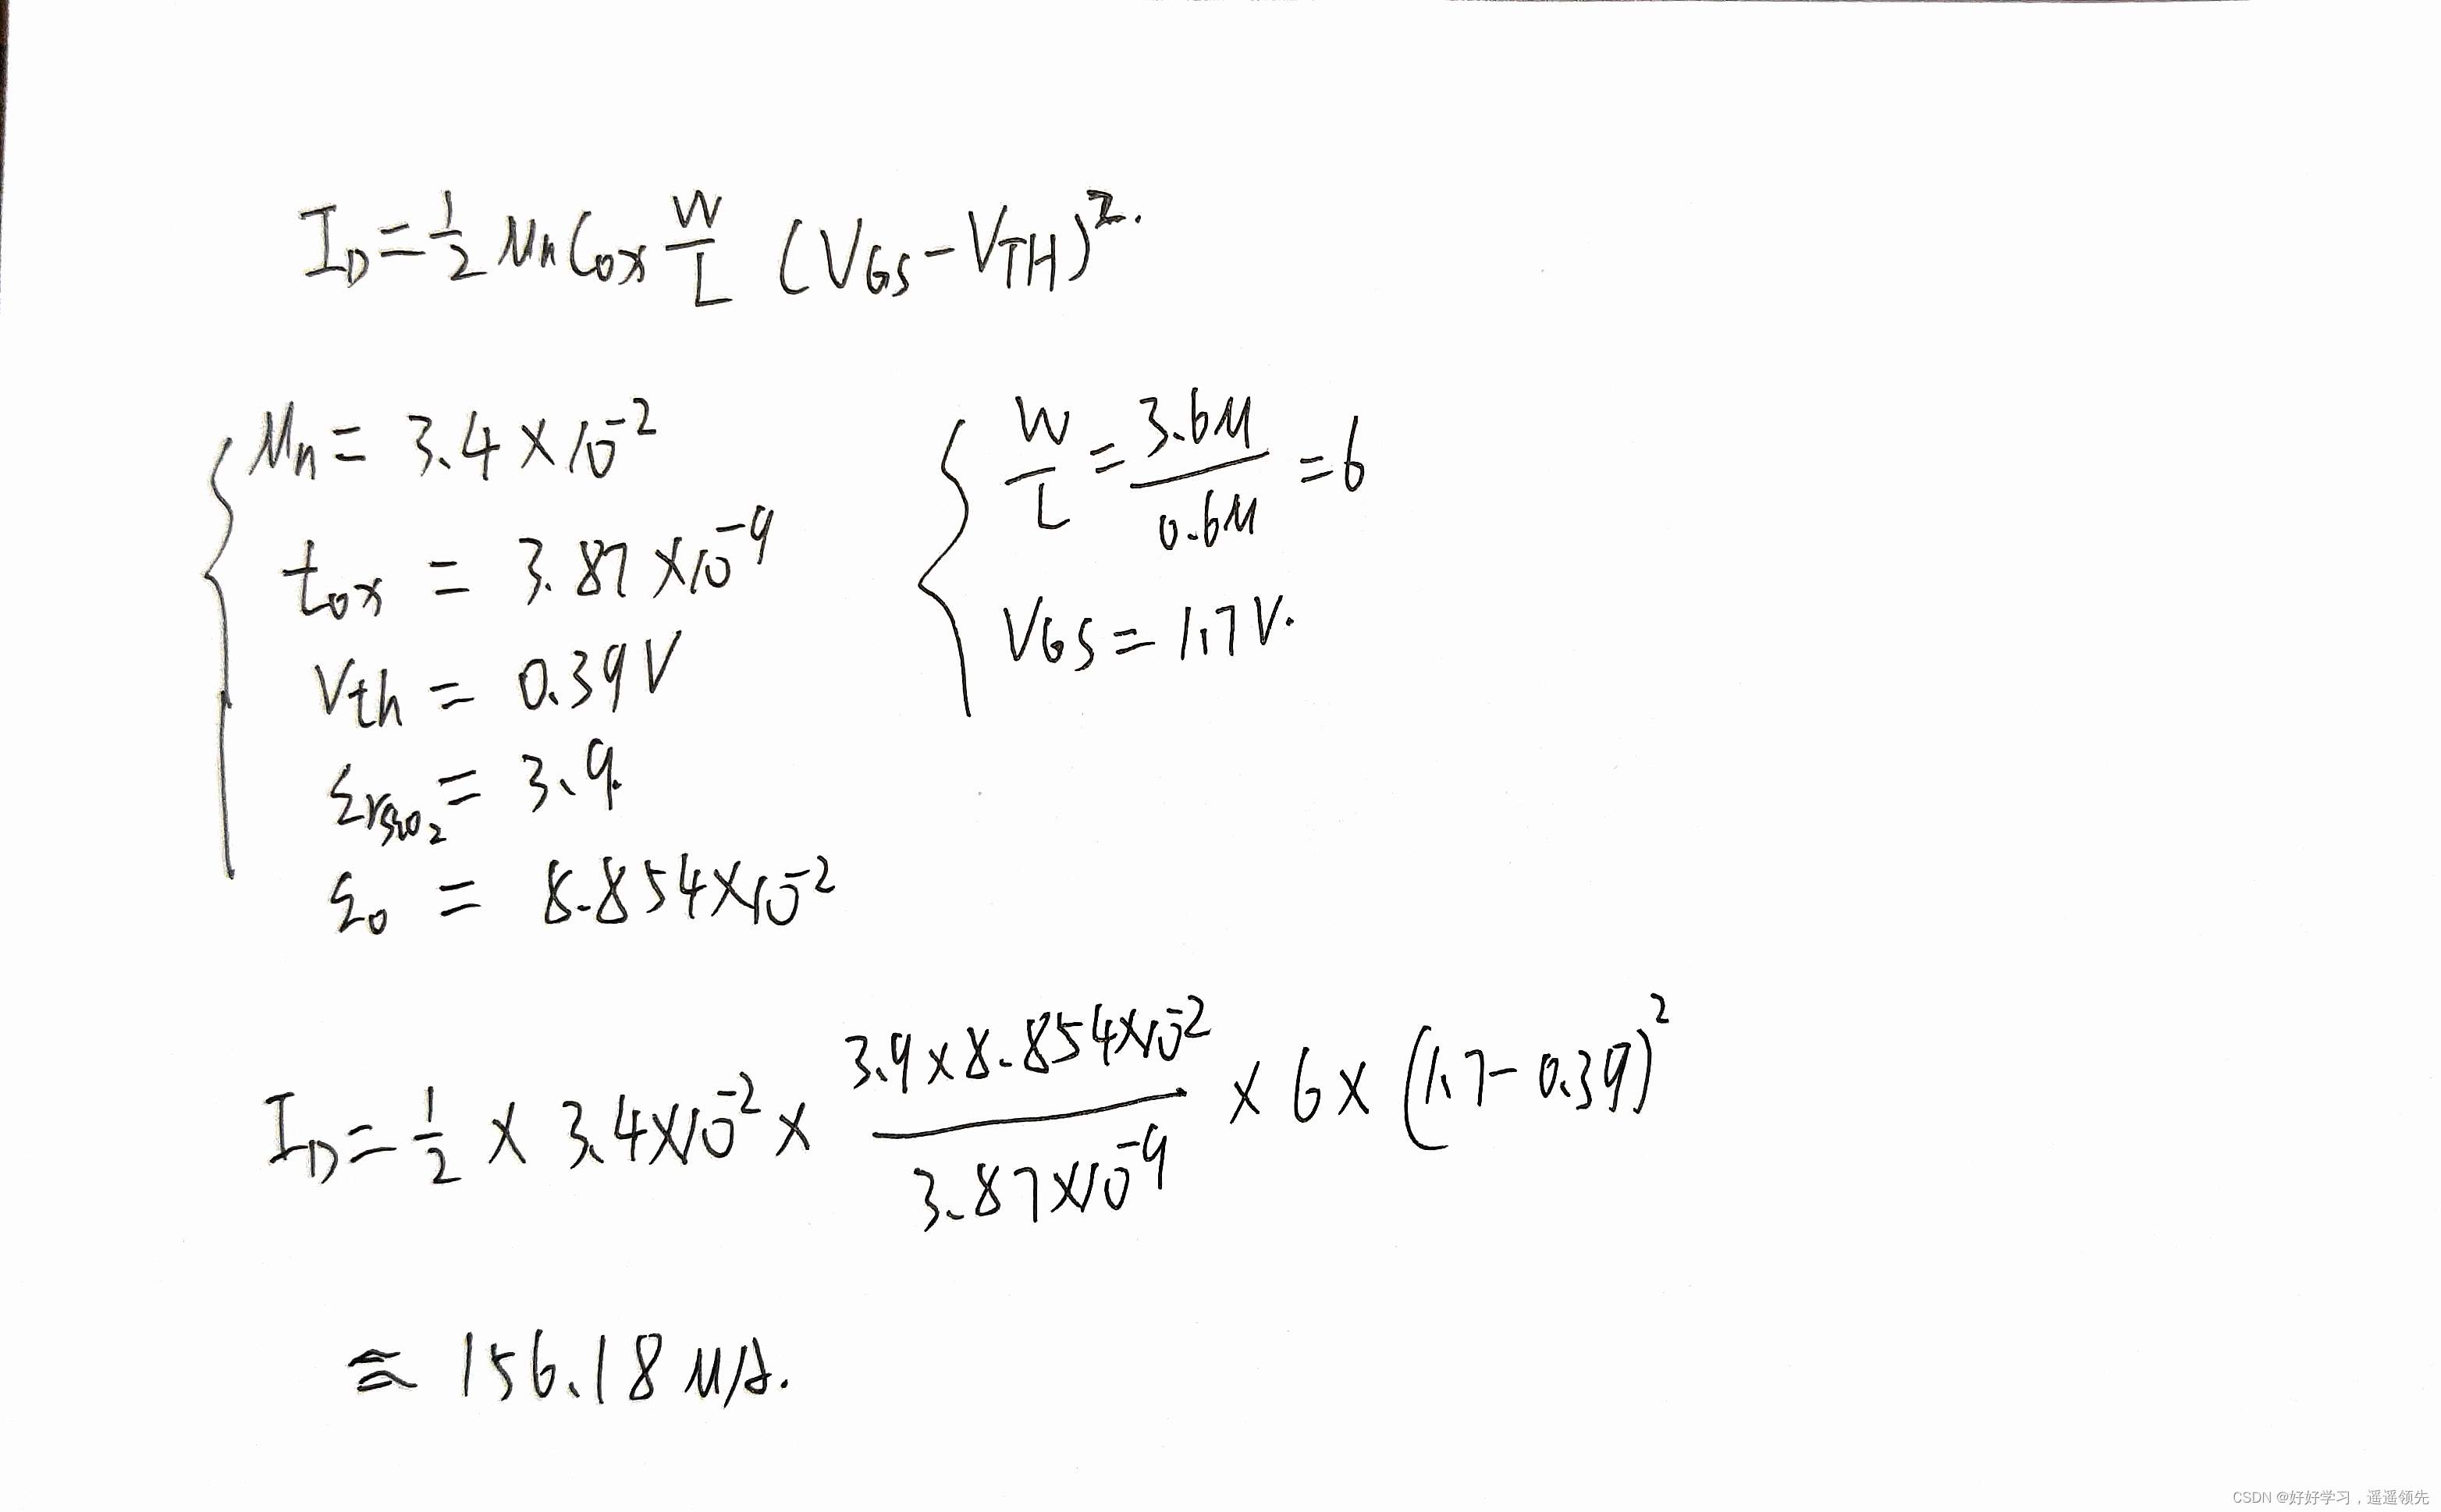 I_D = 1/2 μn Cox W/L (VGS - VTH)^2.
μn = 3.4 × 10^-2
tox = 3.87 × 10^-9
Vth = 0.39V
εrsio2 = 3.9.
ε0 = 8.854 × 10^-2
W/L = 3.6μ/0.6μ = 6
VGS = 1.7V.
I_D = 1/2 × 3.4 × 10^-2 × (3.9 × 8.854 × 10^-2)/(3.87 × 10^-9) × 6 × (1.7 - 0.39)^2
≈ 156.18 μA.
CSDN @好好学习，遥遥领先